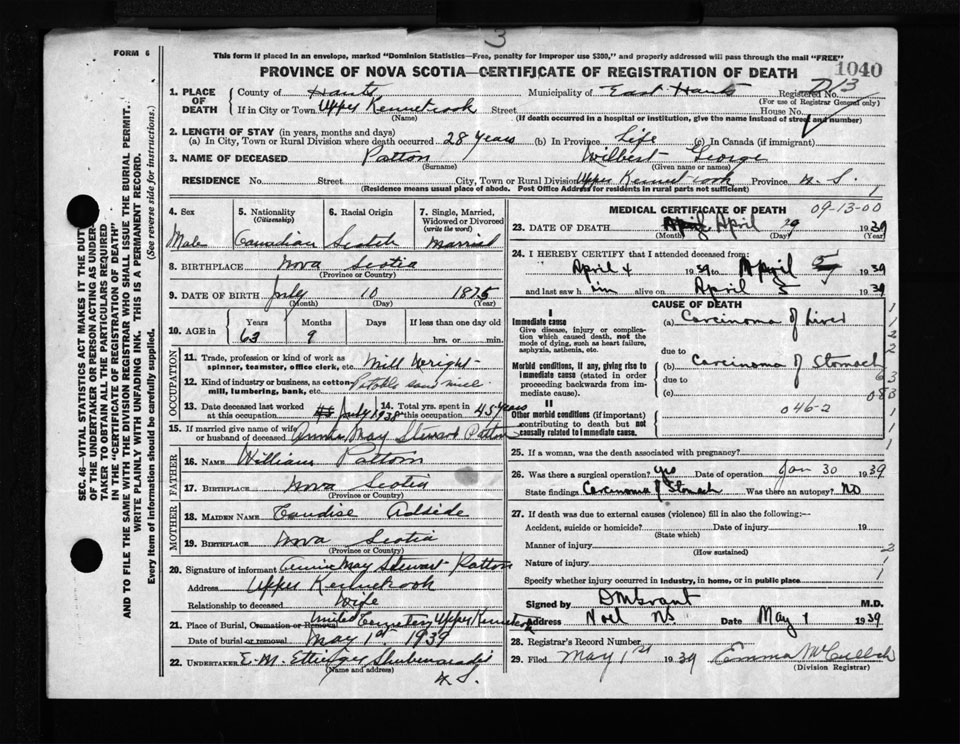 3
FORM 6
This form if placed in an envelope, marked "Dominion Statistics—Free, penalty for improper use $300," and properly addressed will pass through the mail "FREE"
PROVINCE OF NOVA SCOTIA—CERTIFICATE OF REGISTRATION OF DEATH
1040
SEC. 46—VITAL STATISTICS ACT MAKES IT THE DUTY
OF THE UNDERTAKER OR PERSON ACTING AS UNDER-
TAKER TO OBTAIN ALL THE PARTICULARS REQUIRED
IN THE "CERTIFICATE OF REGISTRATION OF DEATH"
AND TO FILE THE SAME WITH THE DIVISION REGISTRAR WHO SHALL ISSUE THE BURIAL PERMIT.
WRITE PLAINLY WITH UNFADING INK. THIS IS A PERMANENT RECORD.
Every item of information should be carefully supplied. (See reverse side for instructions.)
1. PLACE OF DEATH County of Hants Municipality of East Hants Registered No. 13
(For use of Registrar General only)
If in City or Town Upper Kennetcook Street House No.
(Name) (If death occurred in a hospital or institution, give the name instead of street and number)
2. LENGTH OF STAY (in years, months and days)
(a) In City, Town or Rural Division where death occurred 28 years (b) In Province Life (c) In Canada (if immigrant)
3. NAME OF DECEASED Patton Wilbert George
(Surname) (Given name or names)
RESIDENCE No. Street City, Town or Rural Division Upper Kennetcook Province N. S.
(Residence means usual place of abode. Post Office Address for residents in rural parts not sufficient) 1
4. Sex 5. Nationality (Citizenship) 6. Racial Origin 7. Single, Married, Widowed or Divorced (write the word)
Male Canadian Scotch Married
8. BIRTHPLACE Nova Scotia
(Province or Country)
9. DATE OF BIRTH July 10 1875
(Month) (Day) (Year)
10. AGE in Years Months Days If less than one day old
63 9 hrs. or min.
OCCUPATION
11. Trade, profession or kind of work as spinner, teamster, office clerk, etc. Mill Wright
12. Kind of industry or business, as cotton mill, lumbering, bank, etc. Portable saw mill
13. Date deceased last worked at this occupation July 1938 14. Total yrs. spent in this occupation 45 years
15. If married give name of wife or husband of deceased Annie May Stewart Patton
FATHER
16. NAME William Patton
17. BIRTHPLACE Nova Scotia
(Province or Country)
MOTHER
18. MAIDEN NAME
19. BIRTHPLACE Nova Scotia
(Province or Country)
20. Signature of informant Annie May Stewart Patton
Address Upper Kennetcook
Relationship to deceased Wife
21. Place of Burial, Cremation or Removal United Cemetery Upper Kennetcook
Date of burial or removal May 1st 1939
22. UNDERTAKER E. M. Ettinger Shubenacadie
(Name and address) N. S.
MEDICAL CERTIFICATE OF DEATH 09-13-00
23. DATE OF DEATH April 29 1939
(Month) (Day) (Year)
24. I HEREBY CERTIFY that I attended deceased from:
April 4 1939 to April 5 1939
and last saw him alive on April 5 1939
CAUSE OF DEATH
I
Immediate cause
Give disease, injury or complication which caused death, not the mode of dying, such as heart failure, asphyxia, asthenia, etc.
(a) Carcinoma of Liver
due to
Morbid conditions, if any, giving rise to immediate cause (stated in order proceeding backwards from immediate cause).
(b) Carcinoma of Stomach
due to
(c)
II
Other morbid conditions (if important) contributing to death but not causally related to immediate cause.
046-2
1
1
2
2
63
083
1
1
1
25. If a woman, was the death associated with pregnancy?
26. Was there a surgical operation? yes Date of operation Jan 30 1939
State findings Carcinoma of Stomach Was there an autopsy? No
27. If death was due to external causes (violence) fill in also the following:—
Accident, suicide or homicide? Date of injury 19
(State which)
Manner of injury 2
(How sustained)
Nature of injury 1
Specify whether injury occurred in industry, in home, or in public place 1
Signed by M.D.
Address Noel NS Date May 1 1939
28. Registrar's Record Number
29. Filed May 1st 1939 Emma McCulloch
(Division Registrar)